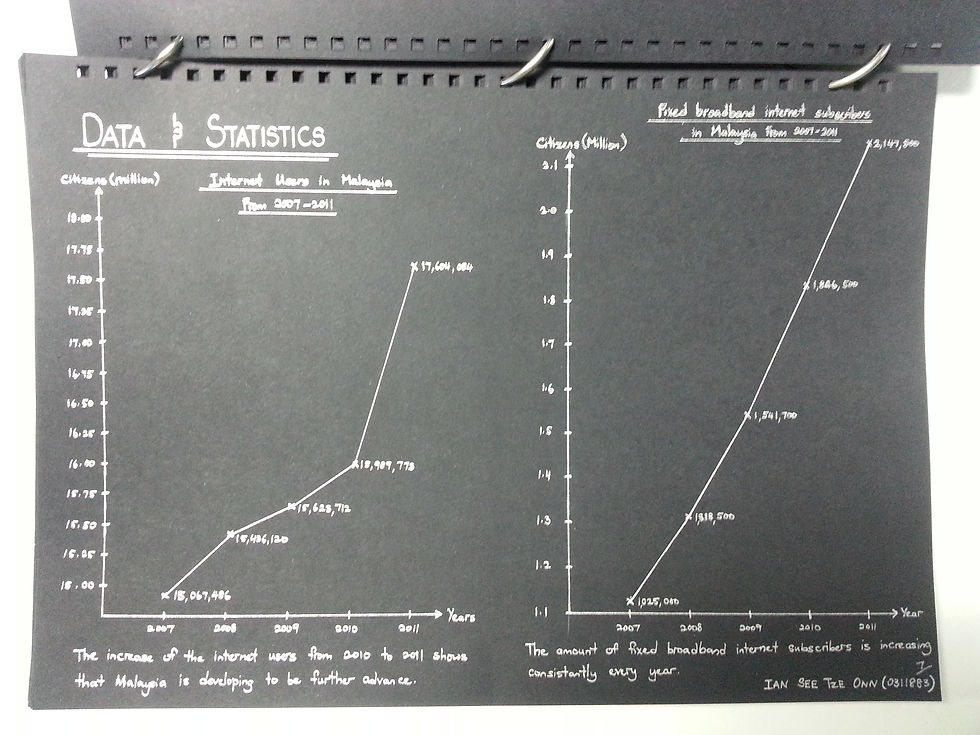 DATA & STATISTICS
Citizens (million)
Internet Users in Malaysia
From 2007-2011
18.00
17.75
17.50
17.25
17.00
16.75
16.50
16.25
16.00
15.75
15.50
15.25
15.00
15,067,486
15,436,120
15,623,712
17,604,084
2007
2008
2009
2010
2011
Years
The increase of the internet users from 2010 to 2011 shows
that Malaysia is developing to be further advance.
Fixed broadband internet subscribers
in Malaysia from 2007-2011
Citizens (Million)
2.1
2.0
1.9
1.8
1.7
1.6
1.5
1.4
1.3
1.2
1.1
1,025,000
1,541,700
2007
2008
2009
2010
2011
Year
The amount of fixed broadband internet subscribers is increasing
consistantly every year.
7/
IAN SEE TZE ONN (0311883)